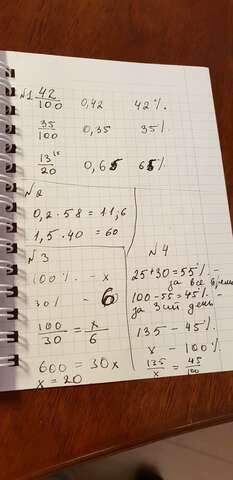 №1 42/100 0,42 42%.
35/100 0,35 35%.
13/20 0,65 65%.
№2
0,2 · 58 = 11,6
1,5 · 40 = 60
№3
100% - x
30% - 6
100/30 = x/6
600 = 30x
x = 20
№4
25+30=55% -
за все время
100-55=45% -
за 3ий день
135 - 45%
x - 100%
135/x = 45/100